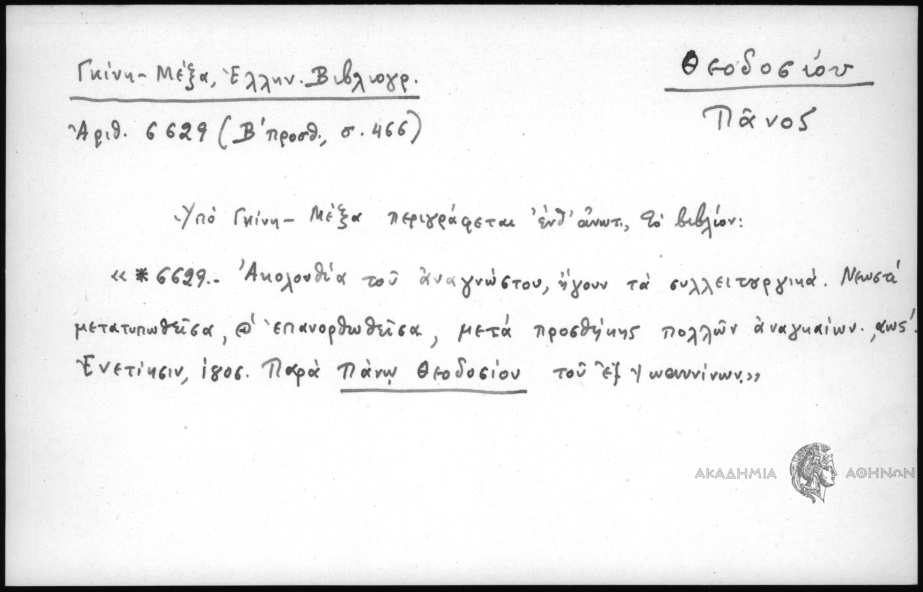 Γκίνη - Μέξα, Ἑλλην. Βιβλιογρ.
Θεοδοσίου
Πᾶνος
Ἀριθ. 6629 (Β' προσθ., σ. 466)
Ὑπὸ Γκίνη - Μέξα περιγράφεται ἐνθ' ἀνωτ., τὸ βιβλίον:
«*6629.- Ἀκολουθία τοῦ ἀναγνώστου, ἤγουν τὰ συλλειτουργικά. Νεωστὶ
μετατυπωθεῖσα, ἐπανορθωθεῖσα, μετὰ προσθήκης πολλῶν ἀναγκαίων. ͵αως'
Ἐνετίησιν, 1806. Παρὰ Πάνῳ Θεοδοσίου τοῦ ἐξ Ἰωαννίνων.»
ΑΚΑΔΗΜΙΑ ΑΘΗΝΩΝ